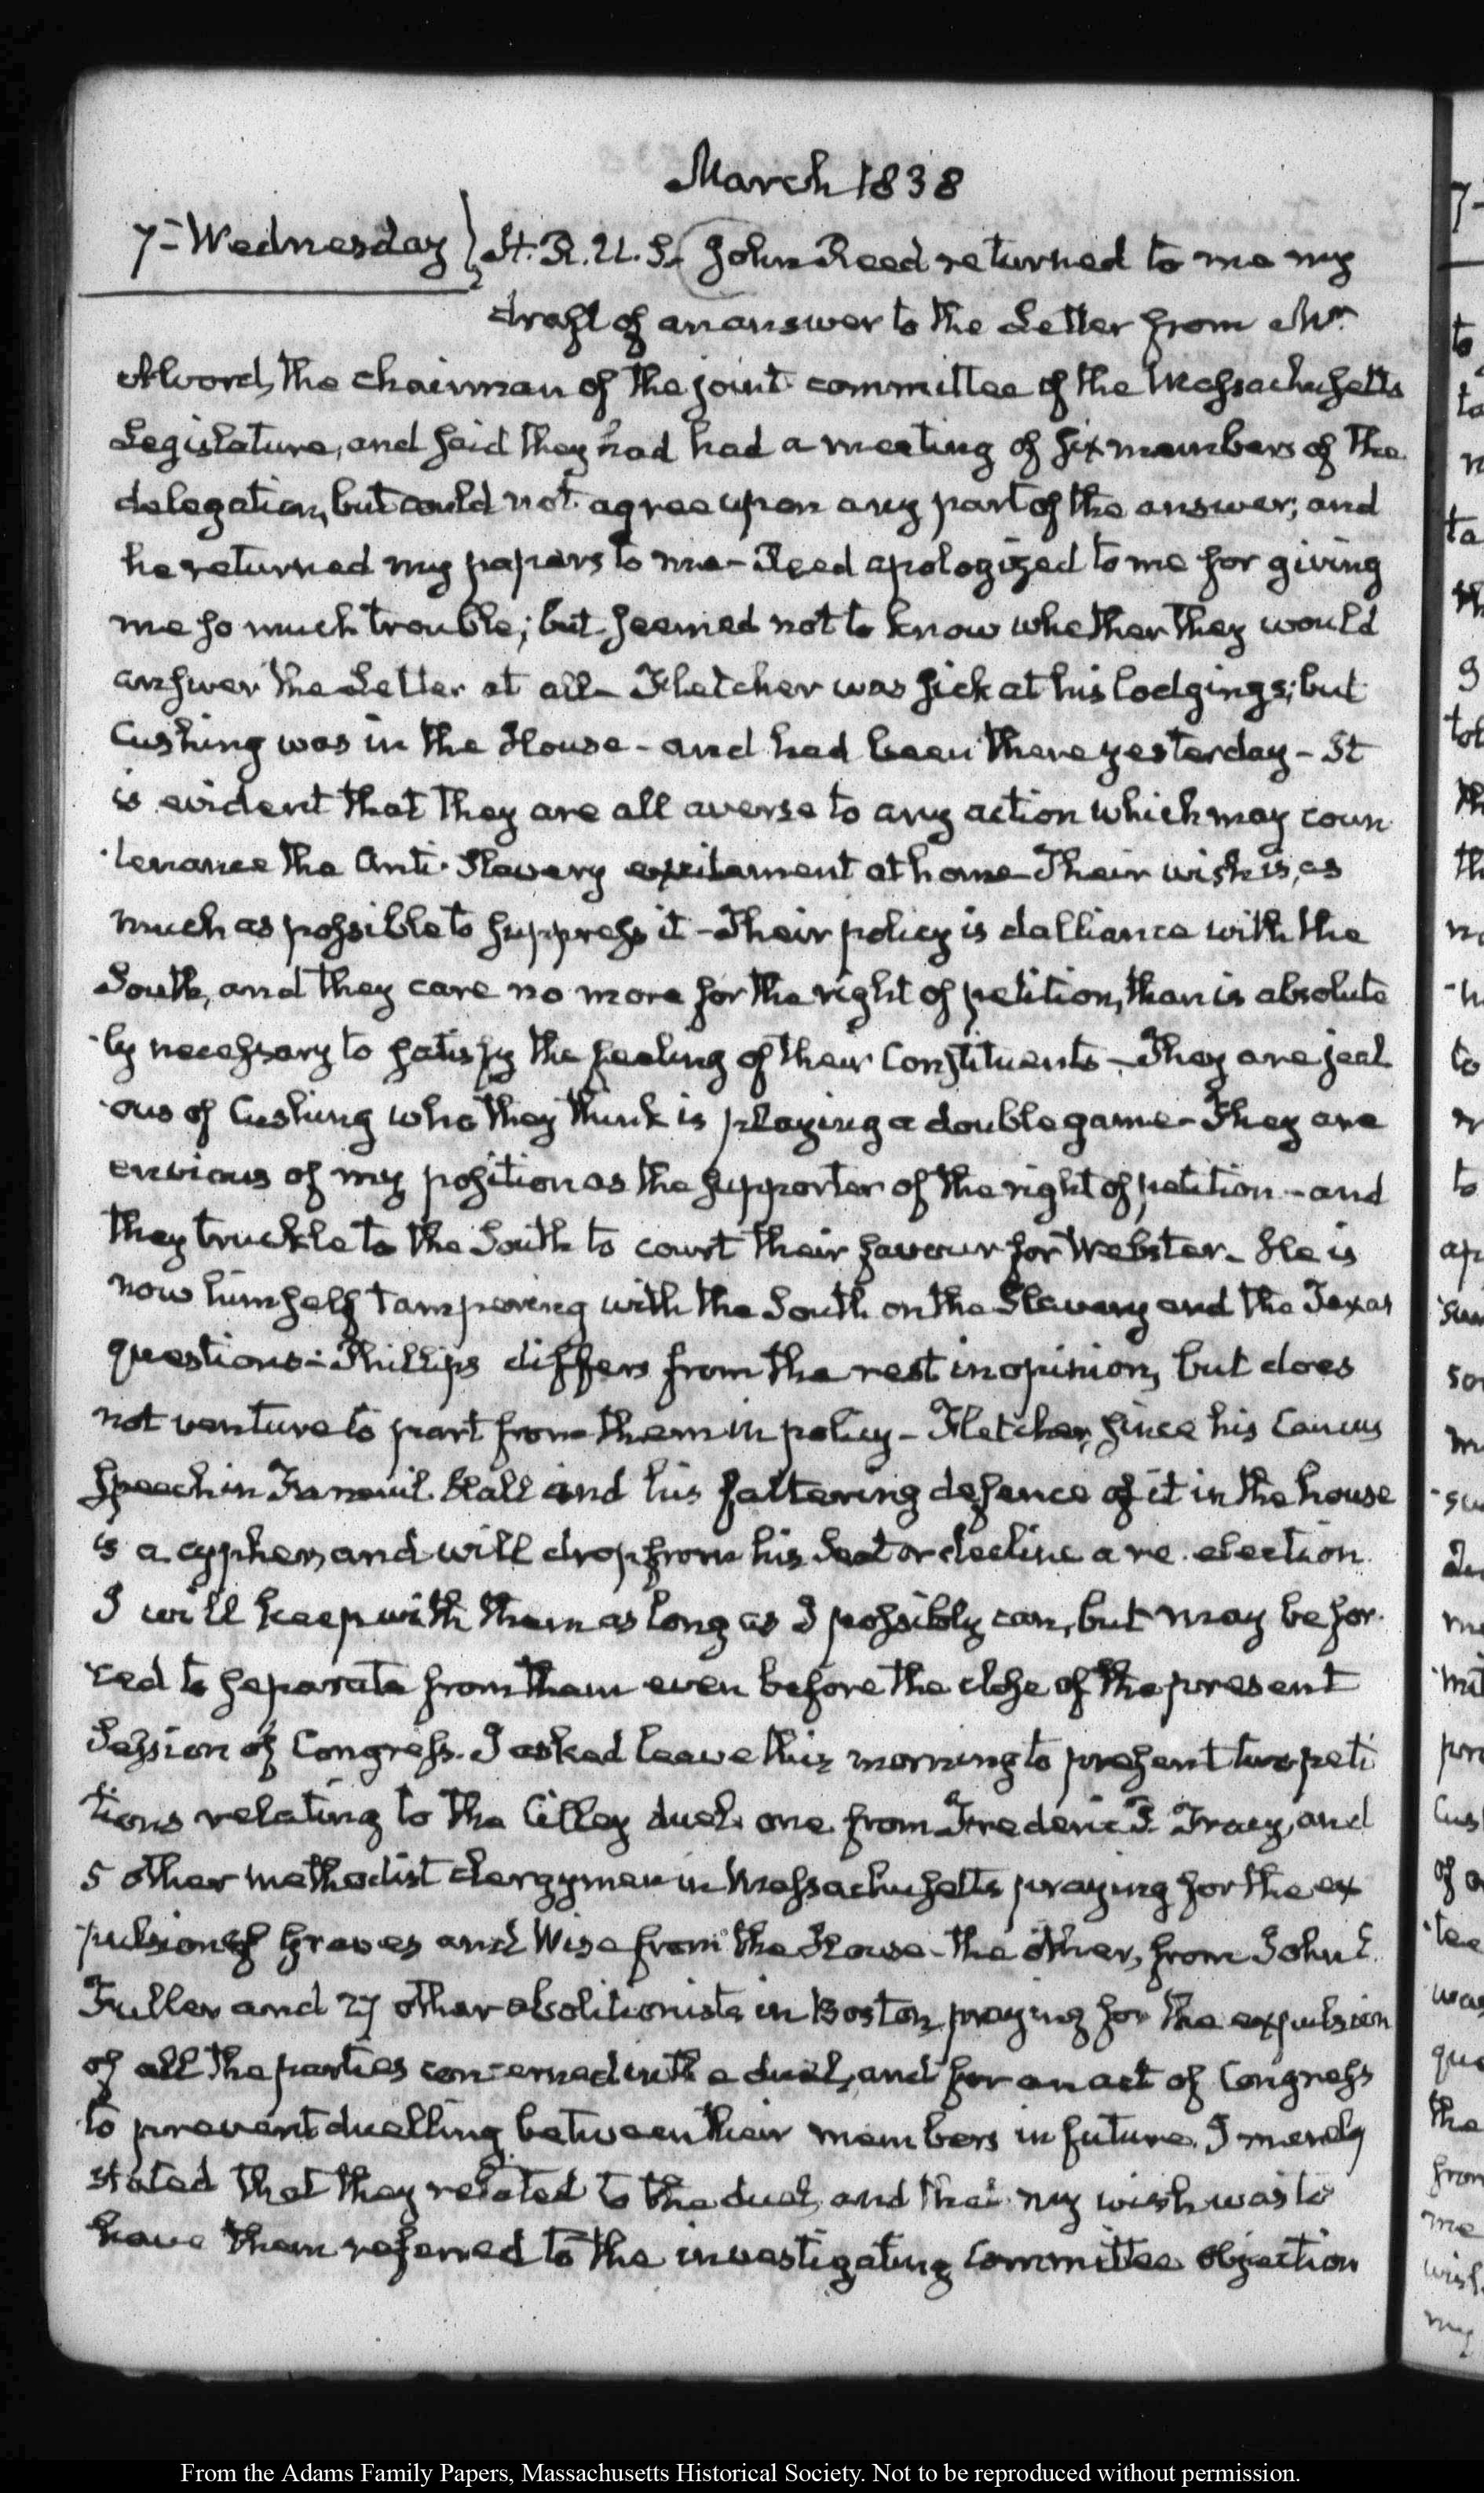 March 1838
7- Wednesday } H. R. U. S. John Reed returned to me my
draft of an answer to the Letter from Mr
Alvord, the chairman of the joint committee of the Massachusetts
Legislature, and said they had had a meeting of six members of the
delegation, but could not agree upon any part of the answer; and
he returned my papers to me - Reed apologized to me for giving
me so much trouble; but seemed not to know whether they would
answer the Letter at all - Fletcher was sick at his lodgings; but
Cushing was in the House - and had been there yesterday - It
is evident that they are all averse to any action which may coun
tenance the Anti-Slavery excitement at home - Their wish is, as
much as possible to suppress it - Their policy is dalliance with the
South, and they care no more for the right of petition, than is absolute
ly necessary to satisfy the feeling of their Constituents - They are jeal
ous of Cushing who they think is playing a double game - They are
envious of my position as the supporter of the right of petition - and
they truckle to the South to court their favour for Webster - He is
now himself tampering with the South on the Slavery and the Texas
questions - Phillips differs from the rest in opinion, but does
not venture to part from them in policy - Fletcher, since his Caucus
Speech in Faneuil Hall and his faltering defence of it in the house
is a cypher, and will drop from his Seat or decline a re-election.
I will keep with them as long as I possibly can, but may be for
ced to separate from them even before the close of the present
Session of Congress. I asked leave this morning to present two peti
tions relating to the Cilley duel. one from Frederic Tracy, and
5 other methodist clergymen in Massachusetts praying for the ex
pulsion of Graves and Wise from the House - the other, from John E.
Fuller and 27 other abolitionists in Boston, praying for the expulsion
of all the parties concerned in the duel, and for an act of Congress
to prevent duelling between their members in future. I merely
stated that they related to the duel, and that my wish was to
have them referred to the investigating Committee objection
From the Adams Family Papers, Massachusetts Historical Society. Not to be reproduced without permission.